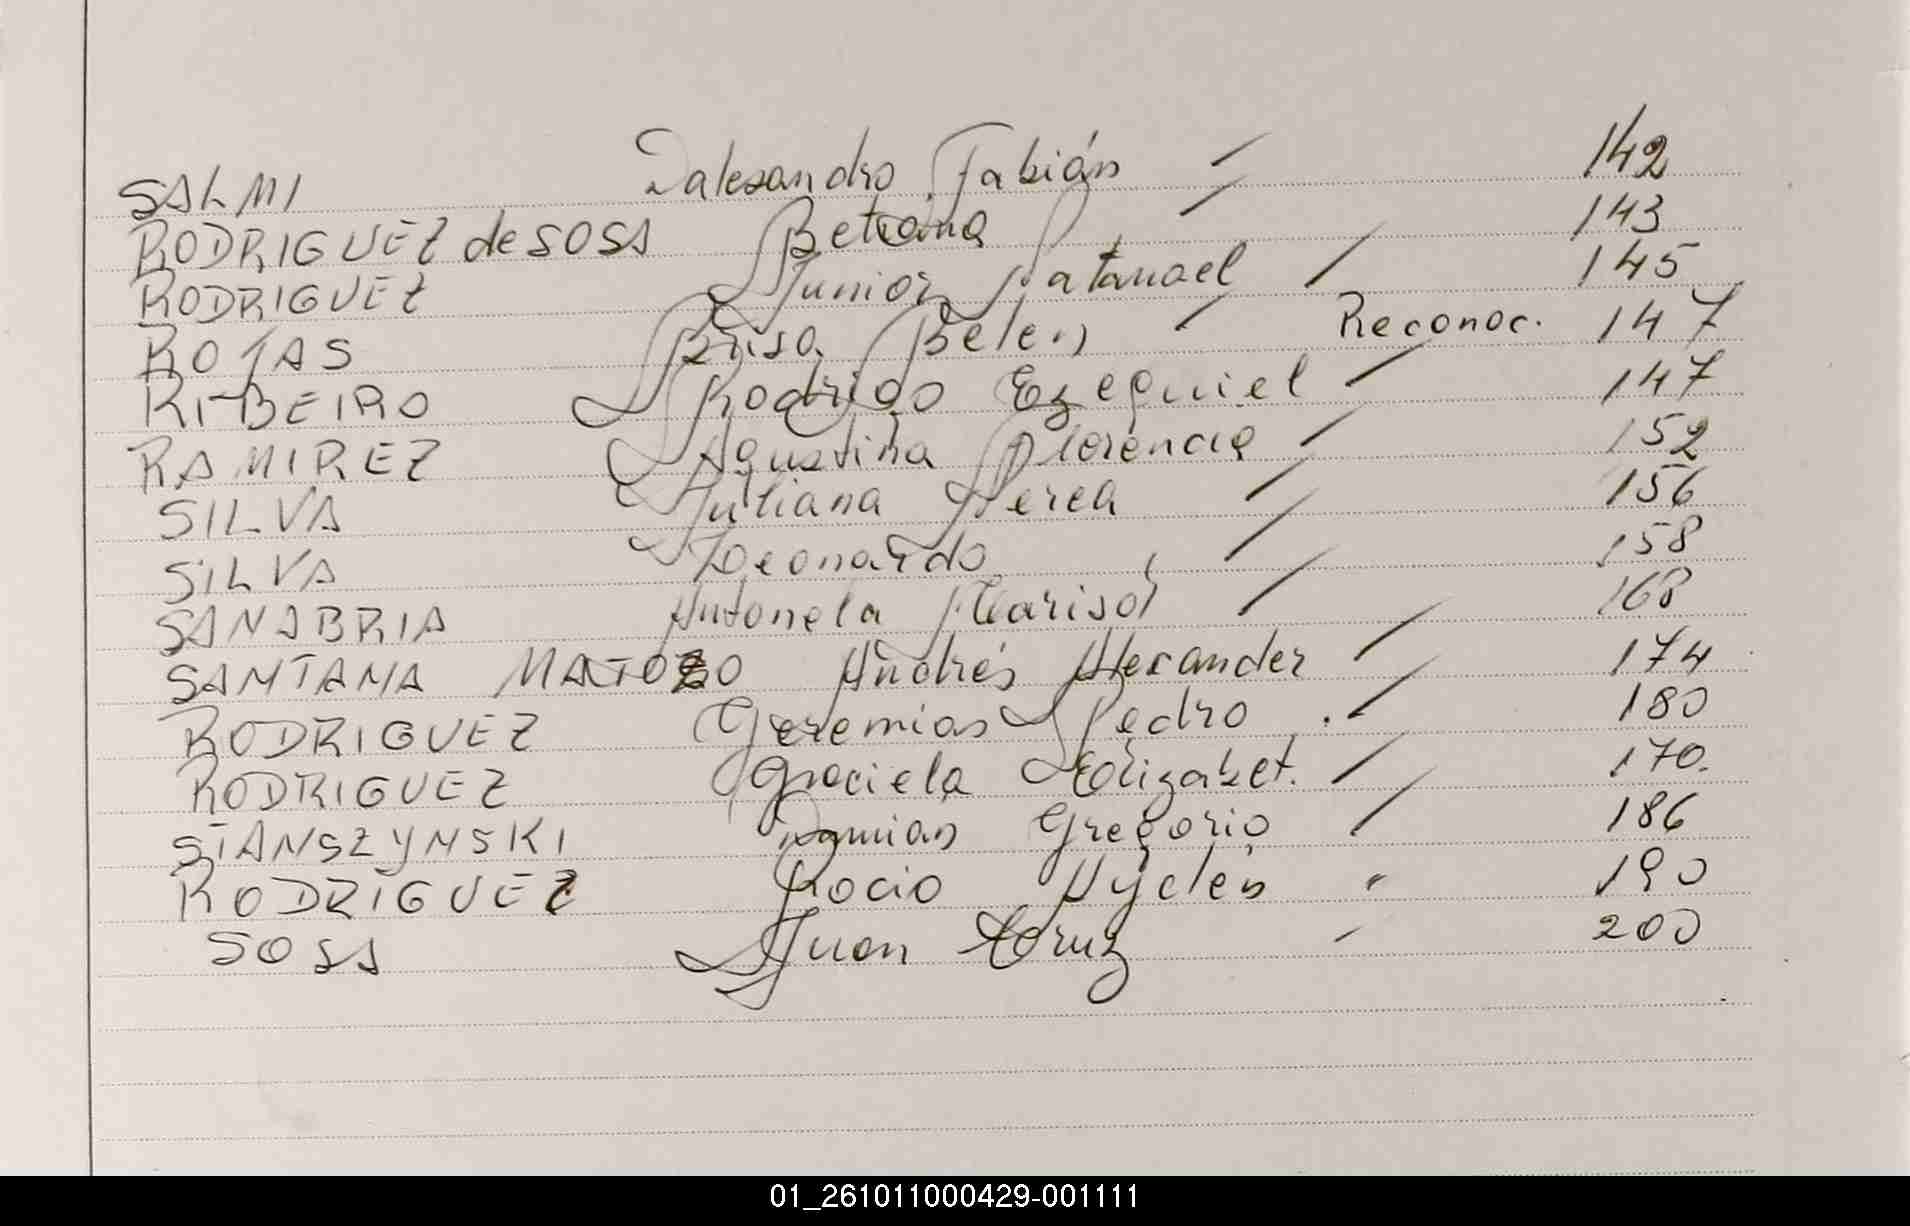 SALMI Dalesandro Fabián 142
RODRIGUEZ de SOSA Betiana 143
RODRIGUEZ Junior Natanael 145
ROJAS Brisa Belen Reconoc. 147
RIBEIRO Rodrigo Ezequiel 147
RAMIREZ Agustina Florencia 152
SILVA Juliana Nerea 156
SILVA Leonardo 158
SANABRIA Antonela Marisol 168
SANTANA MATOZO Andrés Alexander 174
RODRIGUEZ Geremias Pedro 180
RODRIGUEZ Graciela Elizabet. 170.
STANSZYNSKI Damian Gregorio 186
RODRIGUEZ Rocio 190
SOSA Juan Cruz 200
01_261011000429-001111